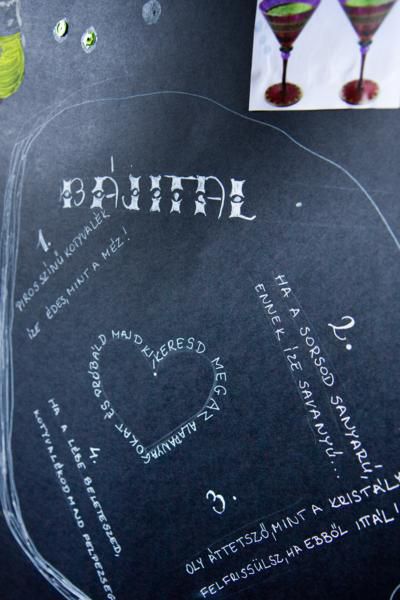 BÁJITAL
1.
PIROS SZINŰ KOTYVALÉK
ÍZE ÉDES, MINT A MÉZ!
KERESD MEG AZ ALAPANYAGOKAT ÉS PRÓBÁLD MAJD KI!
2.
HA A SORSOD SANYARÚ,
ENNEK ÍZE SAVANYÚ...
3.
OLY ÁTTETSZŐ, MINT A KRISTÁLY
FELFRISSÜLSZ, HA EBBŐL ITÁL!
4.
HA A LÉBE BELETESZED,
KOTYVALÉKOD MAJD